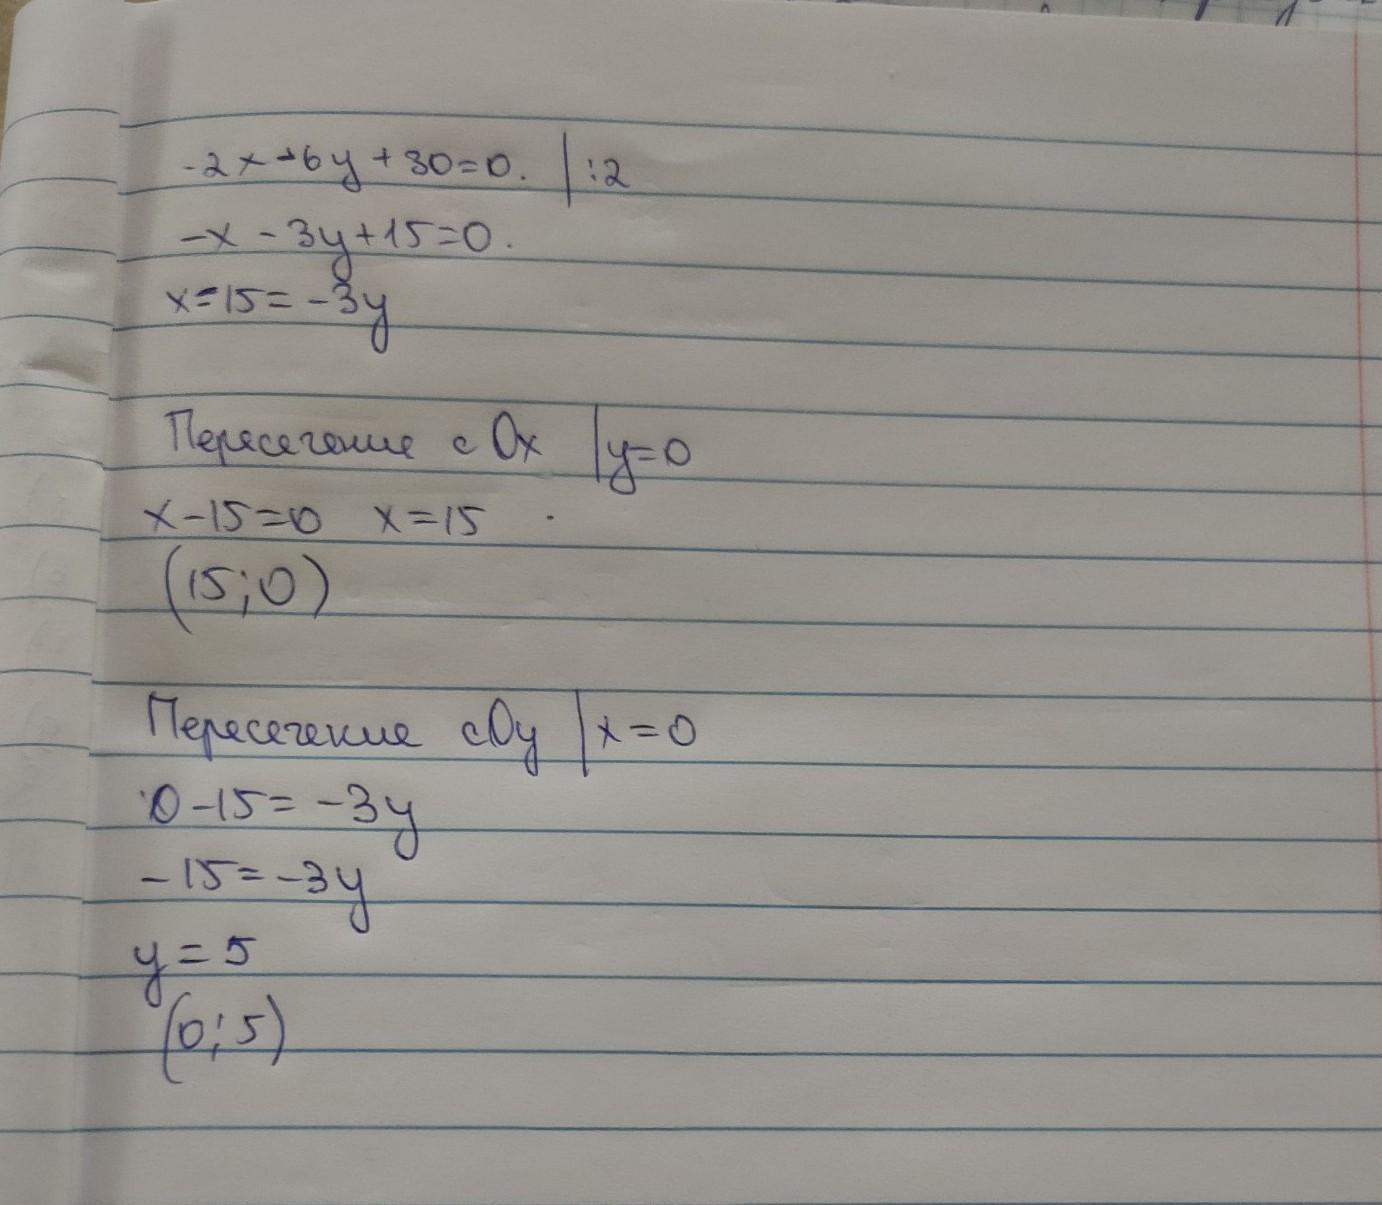 -2x-6y+30=0. | :2
-x-3y+15=0.
x-15=-3y
Пересечение с Ox | y=0
x-15=0 x=15
(15;0)
Пересечение с Oy | x=0
0-15=-3y
-15=-3y
y=5
(0;5)